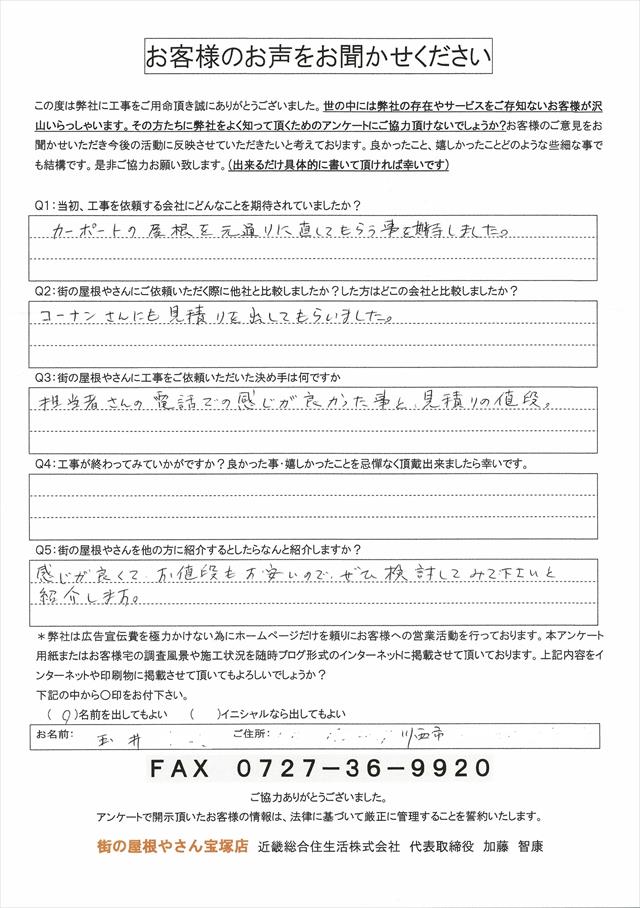 お客様のお声をお聞かせください
この度は弊社に工事をご用命頂き誠にありがとうございました。世の中には弊社の存在やサービスをご存知ないお客様が沢
山いらっしゃいます。その方たちに弊社をよく知って頂くためのアンケートにご協力頂けないでしょうか?お客様のご意見をお
聞かせいただき今後の活動に反映させていただきたいと考えております。良かったこと、嬉しかったことどのような些細な事で
も結構です。是非ご協力お願い致します。(出来るだけ具体的に書いて頂ければ幸いです)
Q1:当初、工事を依頼する会社にどんなことを期待されていましたか?
カーポートの屋根を元通りに直してもらう事を期待しました。
Q2:街の屋根やさんにご依頼いただく際に他社と比較しましたか?した方はどこの会社と比較しましたか?
コーナンさんにも見積りを出してもらいました。
Q3:街の屋根やさんに工事をご依頼いただいた決め手は何ですか
担当者さんの電話での感じが良かった事と、見積りの値段。
Q4:工事が終わってみていかがですか?良かった事・嬉しかったことを忌憚なく頂戴出来ましたら幸いです。
Q5:街の屋根やさんを他の方に紹介するとしたらなんと紹介しますか?
感じが良くて、お値段もお安いので、ぜひ検討してみて下さいと
紹介します。
＊弊社は広告宣伝費を極力かけない為にホームページだけを頼りにお客様への営業活動を行っております。本アンケート
用紙またはお客様宅の調査風景や施工状況を随時ブログ形式のインターネットに掲載させて頂いております。上記内容をイ
ンターネットや印刷物に掲載させて頂いてもよろしいでしょうか?
下記の中から○印をお付下さい。
(○)名前を出してもよい ( )イニシャルなら出してもよい
お名前: 玉井 ご住所: 川西市
FAX 0727-36-9920
ご協力ありがとうございました。
アンケートで開示頂いたお客様の情報は、法律に基づいて厳正に管理することを誓約いたします。
街の屋根やさん宝塚店 近畿総合住生活株式会社 代表取締役 加藤 智康